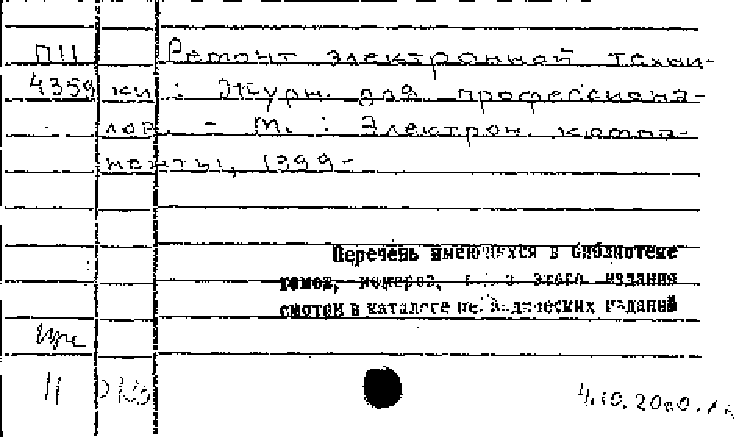 ПII Ремонт электронной техни-
4359 ки : Журн. для профессиона-
лов. - М. : Электрон. компо-
ненты, 1999-
Перечень имеющихся в библиотеке
томов, номеров, этого издания
смотри в каталоге периодических изданий
4.10.2000.